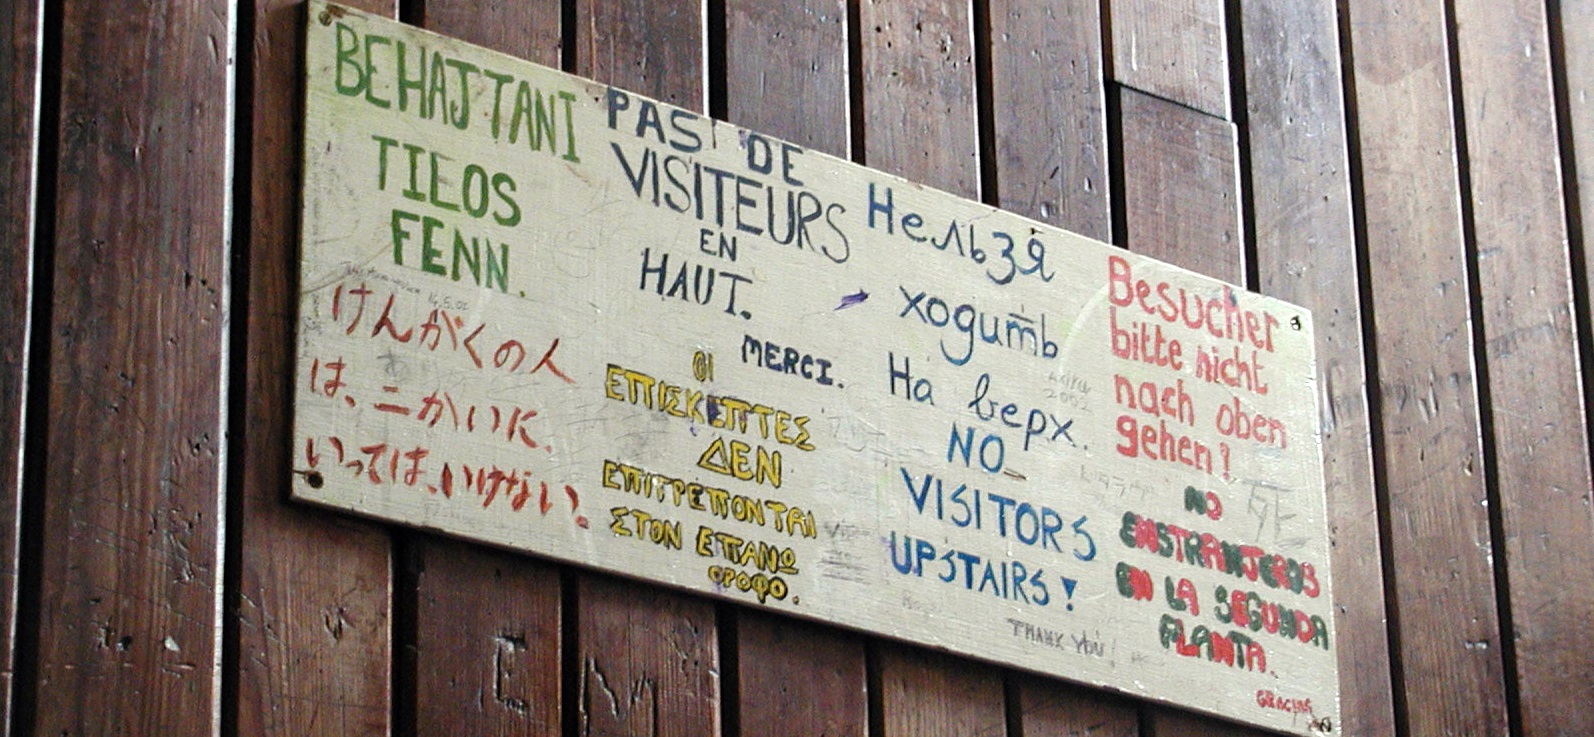 BEHAJTANI
TILOS
FENN.
けんがくの人
は、二かいに、
いっては、いけない。
PAS DE
VISITEURS
EN
HAUT.
MERCI.
ΟΙ
ΕΠΙΣΚΕΠΤΕΣ
ΔΕΝ
ΕΠΙΤΡΕΠΟΝΤΑΙ
ΣΤΟΝ ΕΠΑΝΩ
ΟΡΟΦΟ.
Нельзя
ходить
На верх.
NO
VISITORS
UPSTAIRS!
THANK YOU!
Besucher
bitte nicht
nach oben
gehen!
NO
ENSTRANJEROS
EN LA SEGUNDA
PLANTA.
GRACIAS